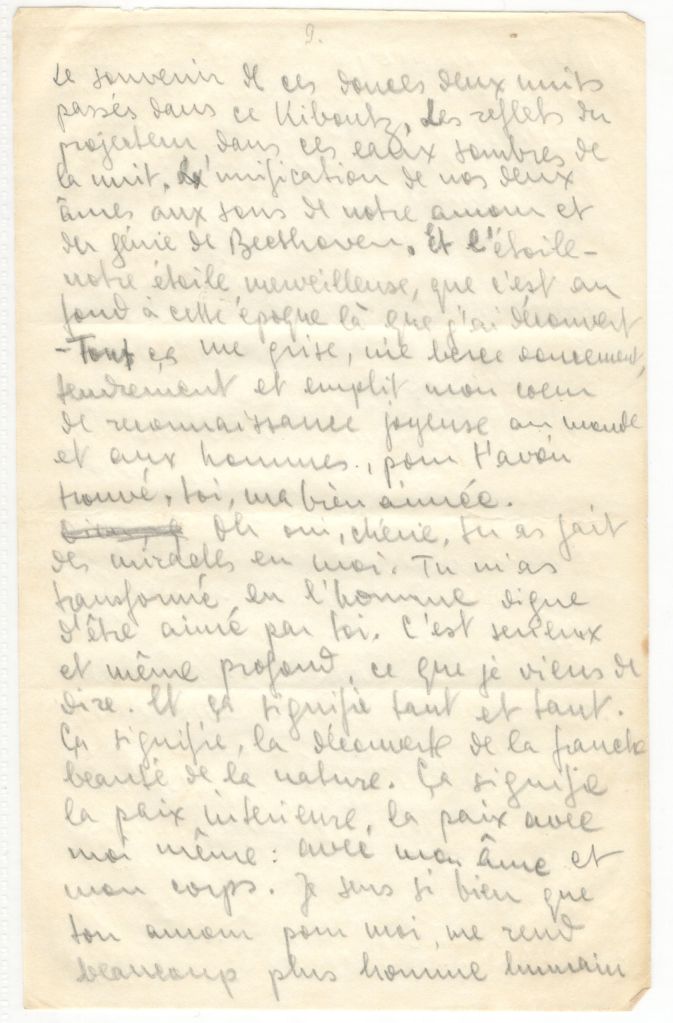 9.
Le souvenir de ces douces deux nuits
passés dans ce Kiboutz, Les reflets du
projecteur dans ces eaux sombres de
la nuit. L'unification de nos deux
âmes aux sons de notre amour et
du génie de Beethoven. Et l'étoile -
notre étoile merveilleuse, que c'est au
fond à cette époque là que j'ai découvert
- Tout ça me grise, me berce doucement,
tendrement et emplit mon coeur
de reconnaissance joyeuse au monde
et aux hommes, pour t'avoir
trouvé, toi, ma bien aimée.
Oh oui, chérie, tu as fait
des miracles en moi. Tu m'as
transformé en l'homme digne
d'être aimé par toi. C'est serieux
et même profond, ce que je viens de
dire. Et ça signifie tant et tant.
Ça signifie, la découverte de la franche
beauté de la nature. Ça signifie
la paix interieure, la paix avec
moi même : avec mon âme et
mon corps. Je sens si bien que
ton amour pour moi, me rend
beaucoup plus homme humain